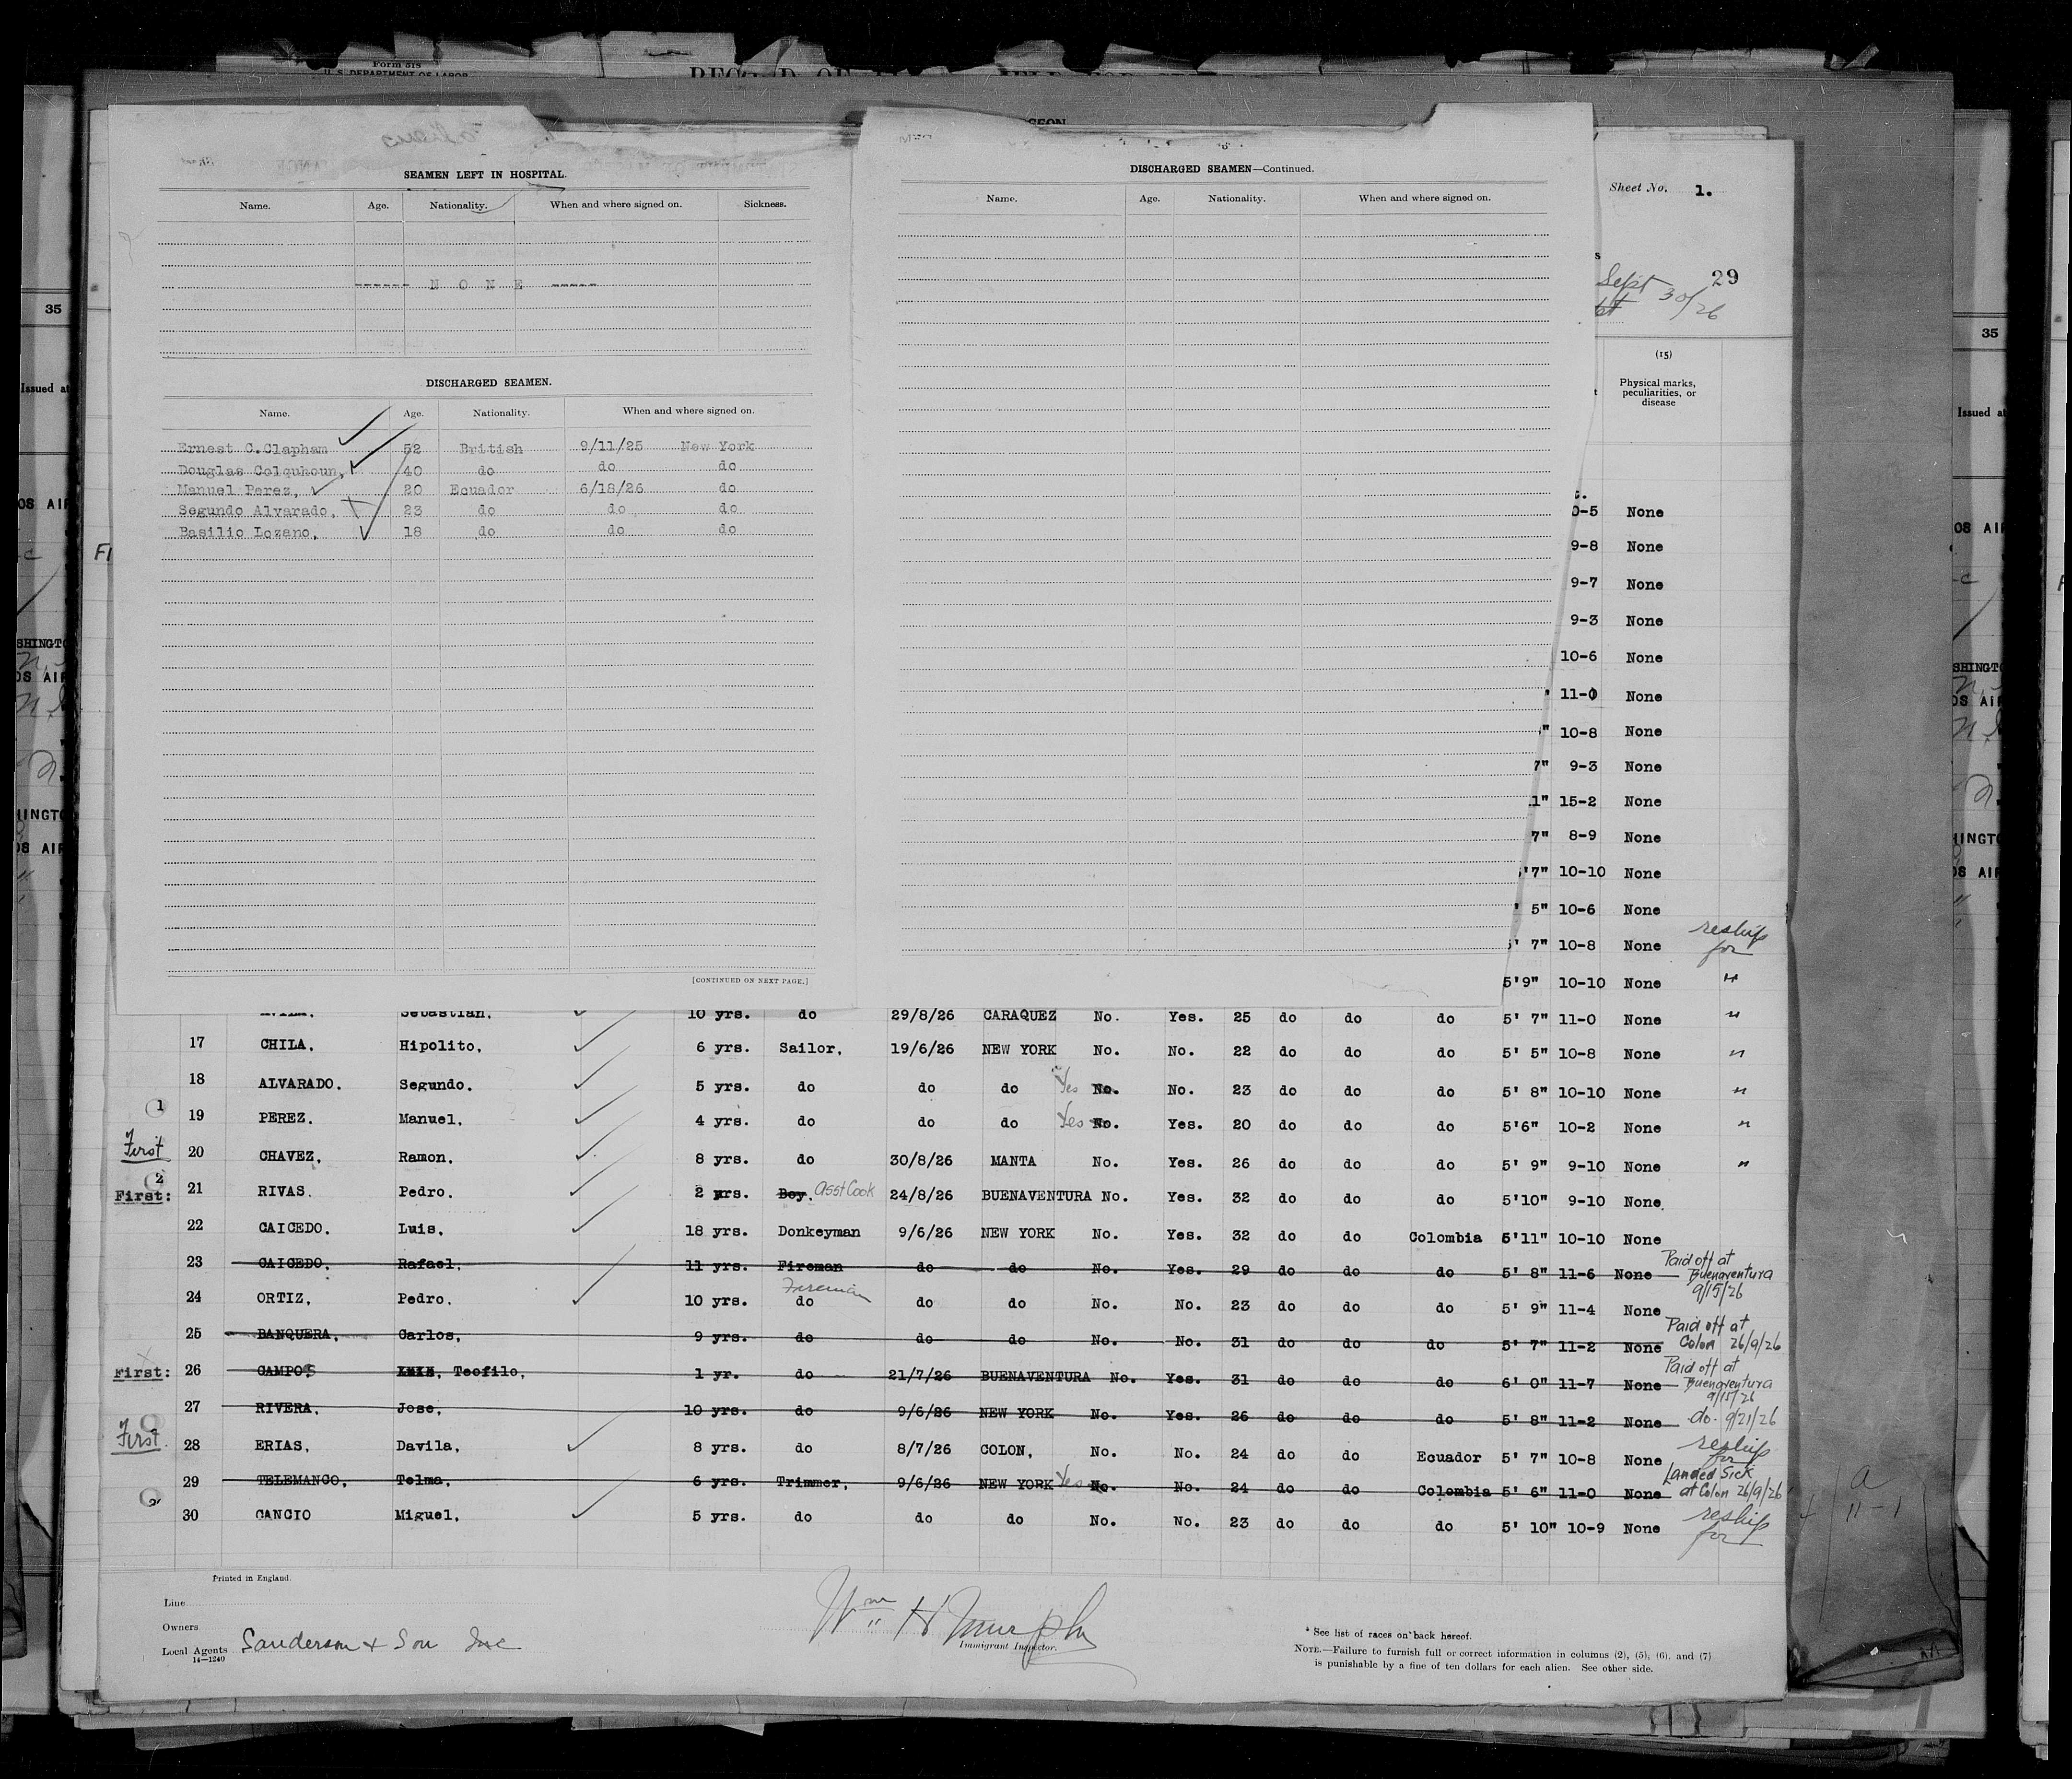 Form 315
U. S. DEPARTMENT OF LABOR
SEAMEN LEFT IN HOSPITAL.
Name. Age. Nationality. When and where signed on. Sickness.
------ N O N E -----
DISCHARGED SEAMEN.
Name. Age. Nationality. When and where signed on.
Ernest C.Clapham 52 British 9/11/25 New York
Douglas Colquhoun, 40 do do do
Manuel Perez, 20 Ecuador 6/18/26 do
Segundo Alvarado, 23 do do do
Basilio Lozano, 18 do do do
[CONTINUED ON NEXT PAGE.]
6
DISCHARGED SEAMEN—Continued.
Name. Age. Nationality. When and where signed on.
Sheet No. 1.
29
Sept 30/26
(15)
Physical marks, peculiarities, or disease
35
Issued at
35
Issued at
0-5 None
9-8 None
9-7 None
9-3 None
10-6 None
11-0 None
10-8 None
7" 9-3 None
1" 15-2 None
7" 8-9 None
'7" 10-10 None
' 5" 10-6 None
' 7" 10-8 None reship for
5'9" 10-10 None "
Sebastian. 10 yrs. do 29/8/26 CARAQUEZ No. Yes. 25 do do do 5' 7" 11-0 None "
17 CHILA. Hipolito. 6 yrs. Sailor. 19/6/26 NEW YORK No. No. 22 do do do 5' 5" 10-8 None "
18 ALVARADO. Segundo. 5 yrs. do do do Yes No. No. 23 do do do 5' 8" 10-10 None "
1 19 PEREZ. Manuel. 4 yrs. do do do Yes No. Yes. 20 do do do 5'6" 10-2 None "
First 20 CHAVEZ. Ramon. 8 yrs. do 30/8/26 MANTA No. Yes. 26 do do do 5' 9" 9-10 None "
2 First: 21 RIVAS. Pedro. 2 yrs. Boy. Asst Cook 24/8/26 BUENAVENTURA No. Yes. 32 do do do 5'10" 9-10 None.
22 CAICEDO. Luis. 18 yrs. Donkeyman 9/6/26 NEW YORK No. Yes. 32 do do Colombia 5'11" 10-10 None
23 CAICEDO. Rafael. 11 yrs. Fireman do do No. Yes. 29 do do do 5' 8" 11-6 None Paid off at Buenaventura 9/15/26
24 ORTIZ. Pedro. 10 yrs. Fireman do do do No. No. 23 do do do 5' 9" 11-4 None
25 BANQUERA. Carlos. 9 yrs. do do do No. No. 31 do do do 5' 7" 11-2 None Paid off at Colon 26/9/26
First: 26 CAMPOS Teofilo. 1 yr. do 21/7/26 BUENAVENTURA No. Yes. 31 do do do 6' 0" 11-7 None Paid off at Buenaventura 9/15/26
27 RIVERA. Jose. 10 yrs. do 9/6/26 NEW YORK No. Yes. 26 do do do 5' 8" 11-2 None do. 9/21/26
First 28 ERIAS. Davila. 8 yrs. do 8/7/26 COLON. No. No. 24 do do Ecuador 5' 7" 10-8 None reship for
29 TELEMANCO. Telma. 6 yrs. Trimmer. 9/6/26 NEW YORK Yes No. No. 24 do do Colombia 5' 6" 11-0 None Landed Sick at Colon 26/9/26
2 30 CANCIO Miguel. 5 yrs. do do do No. No. 23 do do do 5' 10" 10-9 None reship for
Printed in England.
Line
Owners
Local Agents Sanderson & Son Inc
14—1240
Wm H Murphy
Immigrant Inspector.
* See list of races on back hereof.
NOTE.—Failure to furnish full or correct information in columns (2), (5), (6), and (7)
is punishable by a fine of ten dollars for each alien. See other side.